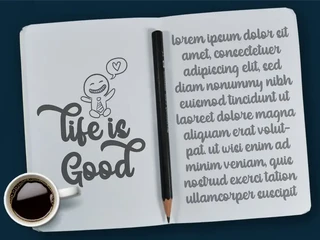 life is
Good
lorem ipsum dolor sit
amet, consectetuer
adipiscing elit, sed
diam nonummy nibh
euismod tincidunt ut
laoreet dolore magna
aliquam erat volut-
pat. ut wisi enim ad
minim veniam, quis
nostrud exerci tation
ullamcorper suscipit